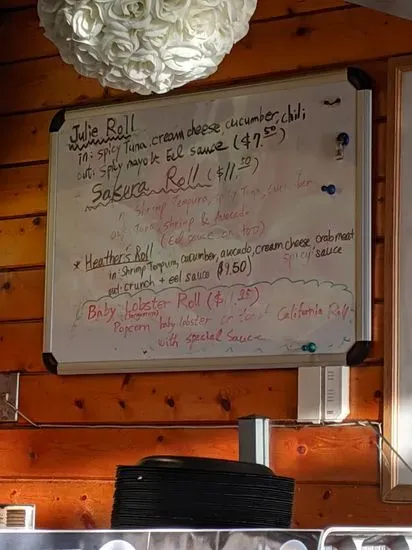 Julie Roll
in: spicy Tuna, cream cheese, cucumber, chili
out: spicy mayo & Eel sauce ($7.50)
Sakura Roll ($11.50)
in Shrimp Tempura, spicy Tuna, cucumber
out: Tuna, shrimp & Avocado
(Eel sauce on top)
* Heather's Roll
in: Shrimp Tempura, cucumber, avocado, cream cheese, crab meat
out: crunch + eel sauce ($9.50) spicy sauce
Baby Lobster Roll ($11.95)
Popcorn baby lobster on top of California Roll
with special Sauce